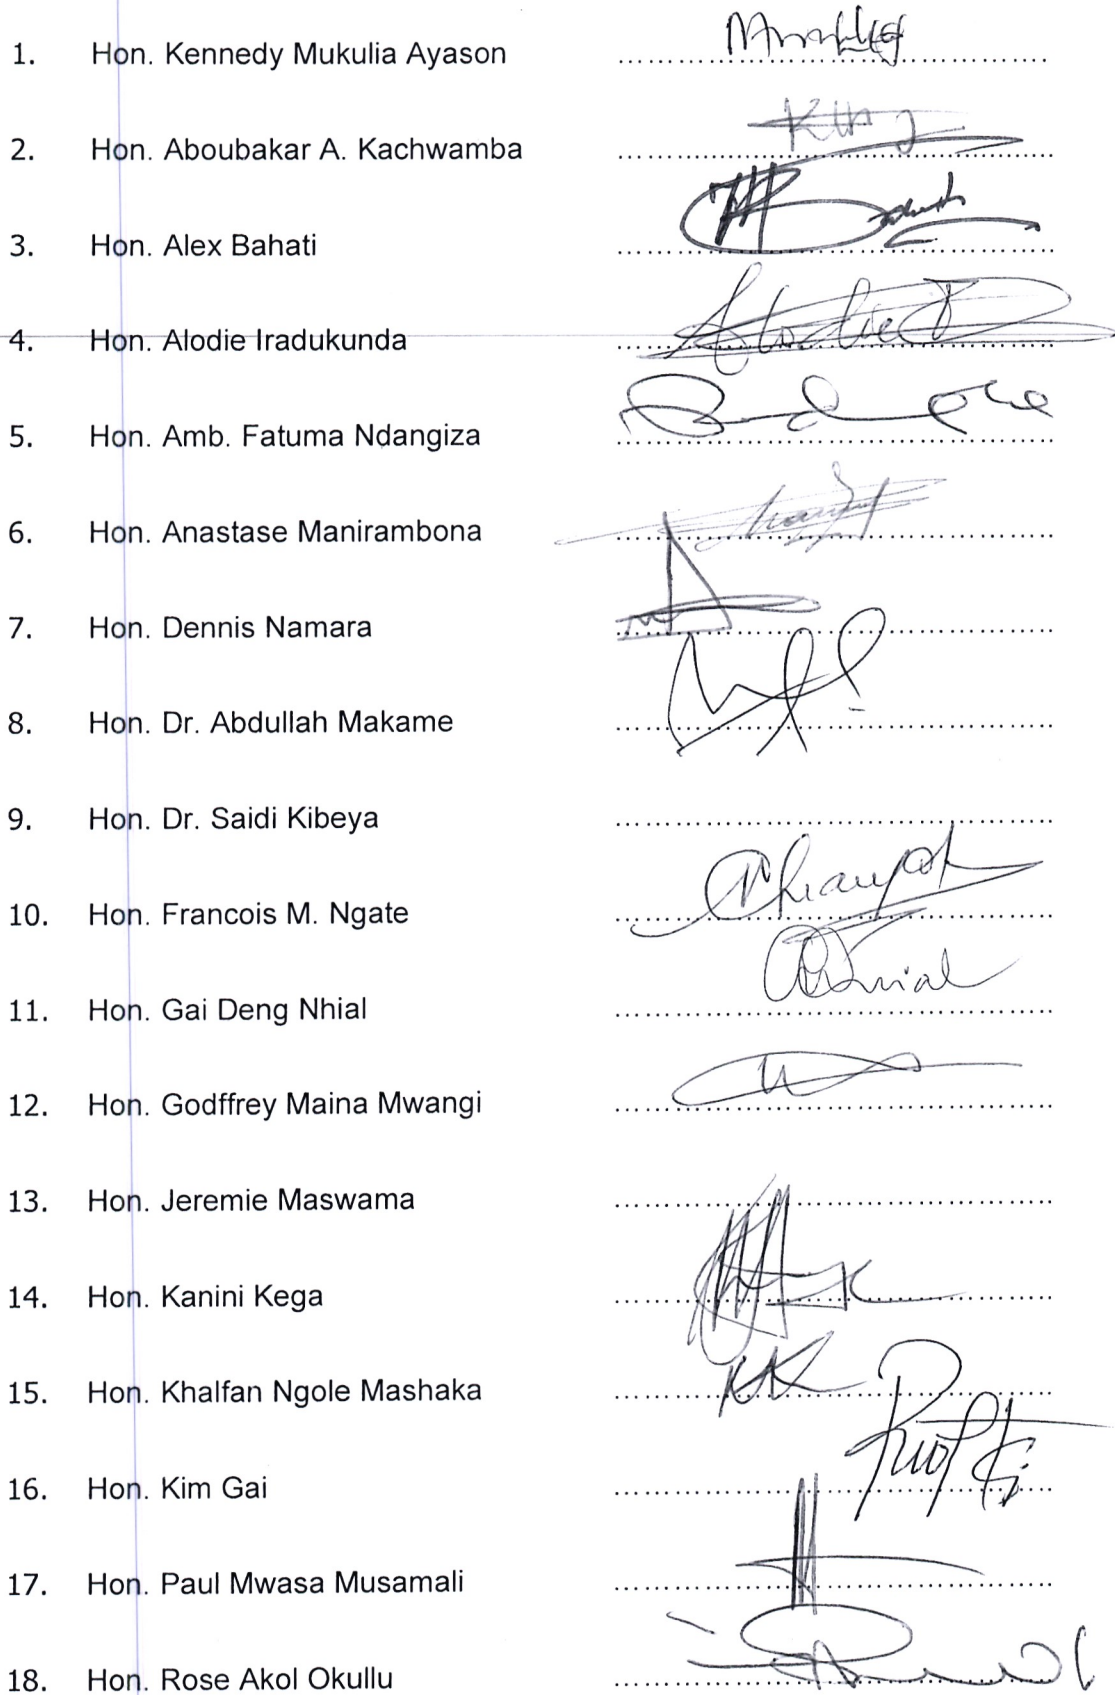 1. Hon. Kennedy Mukulia Ayason ................................................
2. Hon. Aboubakar A. Kachwamba ................................................
3. Hon. Alex Bahati ................................................
4. Hon. Alodie Iradukunda ................................................
5. Hon. Amb. Fatuma Ndangiza ................................................
6. Hon. Anastase Manirambona ................................................
7. Hon. Dennis Namara ................................................
8. Hon. Dr. Abdullah Makame ................................................
9. Hon. Dr. Saidi Kibeya ................................................
10. Hon. Francois M. Ngate ................................................
11. Hon. Gai Deng Nhial ................................................
12. Hon. Godffrey Maina Mwangi ................................................
13. Hon. Jeremie Maswama ................................................
14. Hon. Kanini Kega ................................................
15. Hon. Khalfan Ngole Mashaka ................................................
16. Hon. Kim Gai ................................................
17. Hon. Paul Mwasa Musamali ................................................
18. Hon. Rose Akol Okullu ................................................